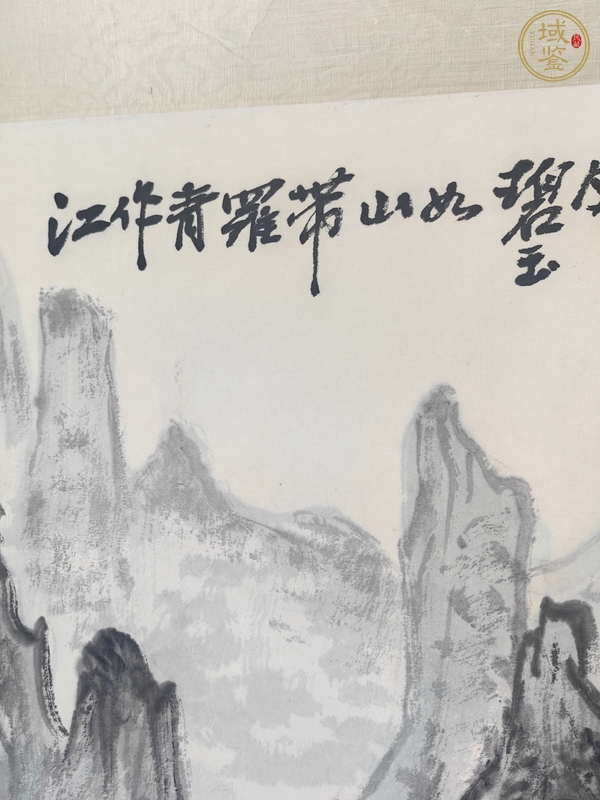 江作青羅帶山如碧玉
域鉴